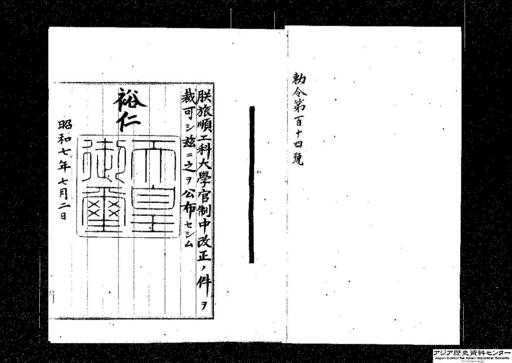 勅令第百十四號
朕旅順工科大學官制中改正ノ件ヲ
裁可シ玆ニ之ヲ公布セシム
裕仁
天皇
御璽
昭和七年七月二日
アジア歴史資料センター
Japan Center for Asian Historical Records